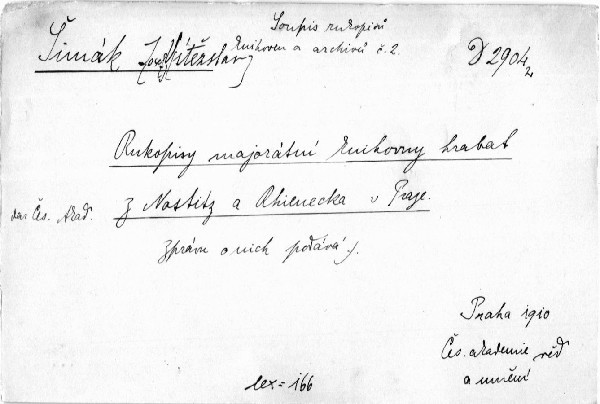 Soupis rukopisů
knihoven a archivů č. 2.
Šimák J[osef] Vítězslav
D 2904
Rukopisy majorátní knihovny hrabat
z Nostitz a Rhienecka v Praze.
dar Čes. Akad.
Zprávu o nich podává J.
Praha 1910
Čes. akademie věd
a umění
lex = 166